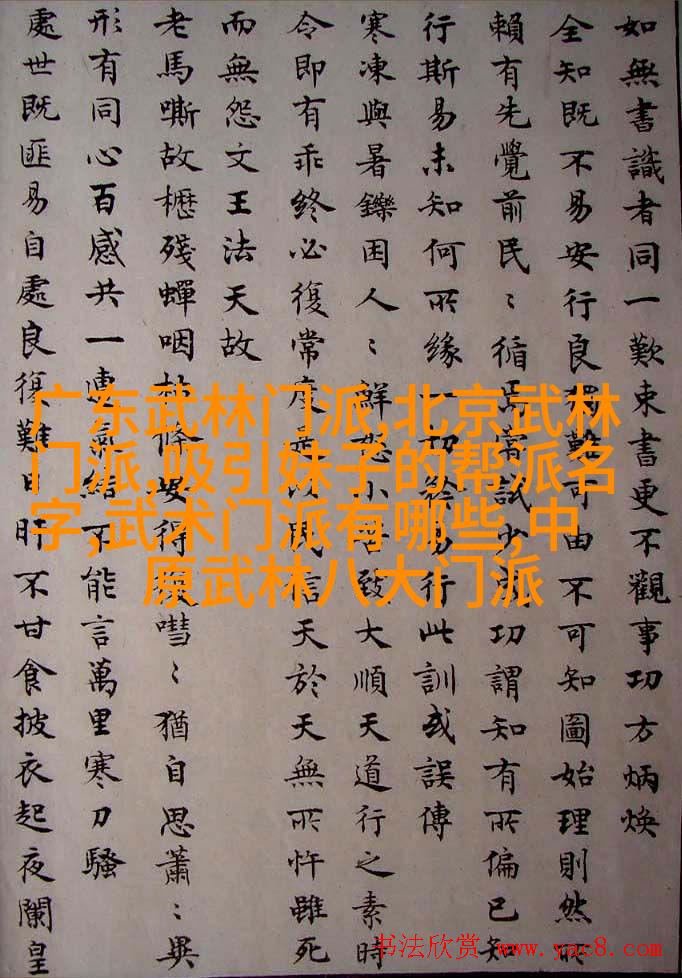 如無書識者同一歎束書更不觀事功方炳煥
全知既不易安行良獨難可由不可知圖始理則然所
賴有先覺前民〻循爲常試少功謂知有所偏已知
行斯易未知何所緣一切易行此訓或誤傳
寒凍與暑鑠困人〻鮮怨小致大順天道行之素時
令即有乖終必復常度以信天於天無所忤雖死
而無怨文王法天故
老馬嘶故櫪殘蟬咽條安得嘒〻猶自思蕭〻異
形有同心百感共一氣不能言萬里寒刀騷
處世既匪易自處良復難日旰不甘食披衣起夜闌皇
广东武林门派,北京武林
门派,吸引妹子的帮派名
字,武术门派有哪些,中
原武林八大门派
书法欣赏 www.yac8.com